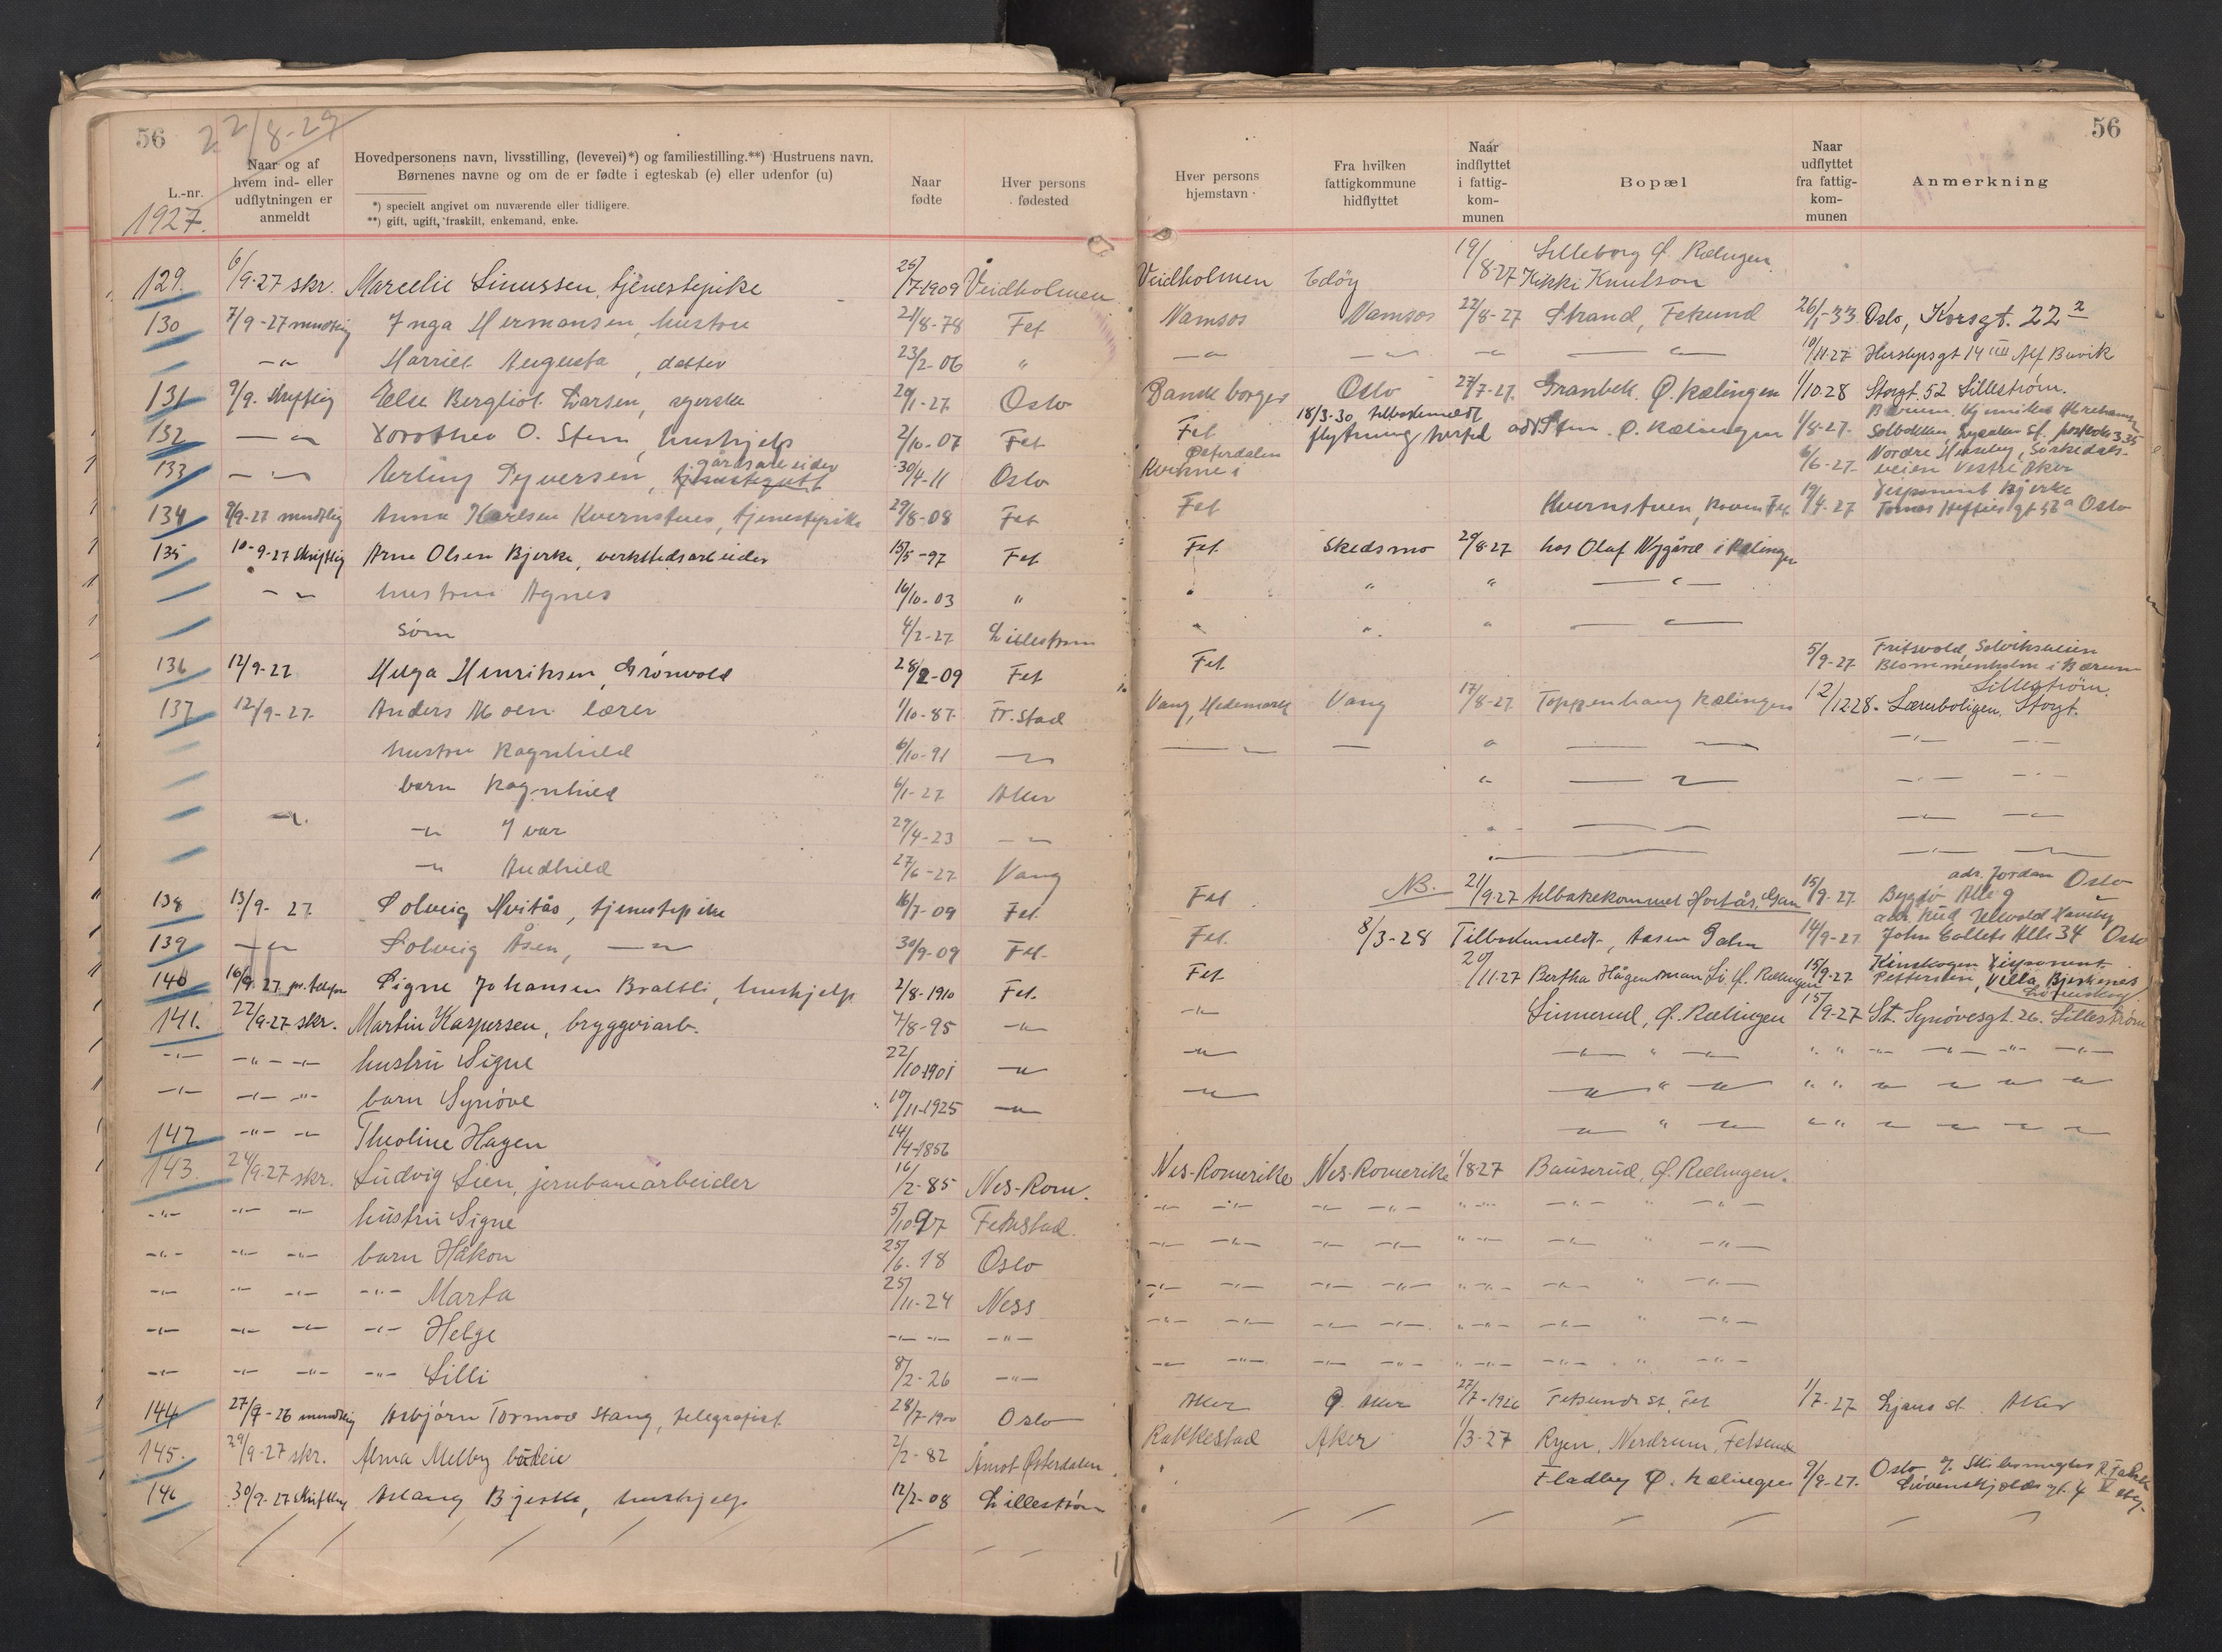 56
22/8-27
L.-nr.
1927.
Naar og af hvem ind- eller udflytningen er anmeldt
Hovedpersonens navn, livsstilling, (levevei)*) og familiestilling.**) Hustruens navn.
Børnenes navne og om de er fødte i egteskab (e) eller udenfor (u)
*) specielt angivet om nuværende eller tidligere.
**) gift, ugift, fraskilt, enkemand, enke.
Naar fødte
Hver persons fødested
Hver persons hjemstavn
Fra hvilken fattigkommune hidflyttet
Naar indflyttet i fattig-kom-munen
Bopæl
Naar udflyttet fra fattig-kom-munen
Anmerkning
56
129. 6/9-27 skr. Marcelie Linussen, tjenestepike 25/7-1909 Veidholmen Veidholmen Edöy 19/8-27 Lilleborg Ø. Rælingen. Kikki Knutson
130 7/9-27 mundtlig Inga Hermansen, hustru 21/8-78 Fet Namsos Namsos 22/8-27 Strand, Fetsund 26/1-33 Oslo, Korsgt. 22 2
-"- Harriet Augusta, datter 23/2-06 " -"- -"- -"- -"- 10/11-27 Herslepsgt 14 III Alf Buvik
131 9/9. skriftlig Else Bergliot Larsen, syerske 20/1-27 Oslo Dansk borger Oslo 27/7-27. Granbek, Ø. Rælingen 1/10-28 Storgt. 52 Lillestrøm.
132 -"- Dorothea O. Stern, hushjelp 2/10-07 Fet Fet 18/3-30 tilbakemeldt flytning hertil adr Stern. Ø. Rælingen 1/8-27. Solbakken, Lysaker st. postboks 335
133 -"- Aerling Syversen, tjenestegutt gårdsarbeider 30/4-11 Oslo Kvikne i Østerdalen 6/6-27. Nordre Huseby, Sørkedalsveien Vestre Aker
134 9/9-27 mundtlig Anna Karlsen Kvernstuen, tjenestepike 29/8-08 Fet Fet Kvernstuen, Roven Fet 19/4-27 Disponent Bjerke Tomas Heftyes gt 56 a Oslo
135 10-9-27 skriftlig Arne Olsen Bjerke, verkstedsarbeider 15/5-97 Fet Fet. Skedsmo 29/8-27 hos Olaf Nygård i Rælingen
-"- hustru Agnes 16/10-03 " " " " -"-
sønn 4/2-27 Lillestrøm " " " -"-
136 12/9-27 Helga Henriksen, Grönvold 28/2-09 Fet Fet. 5/9-27 Fritsvold, Solviksveien Blommenholm i Bærum
137 12/9-27. Anders Moen lærer 1/10-87. Fr.stad Vang, Hedemark Vang 17/8-27 Toppenhaug Rælingen 12/12-28. Lærerboligen. Storgt. Lillestrøm.
hustru Ragnhild 6/10-91 -"- -"- - " -"- -"-
barn Ragnhild 6/1-27 Aker " -"- -"-
-"- -"- Ivar 29/4-23 -"- " -"- -"-
-"- Audhild 27/6-27 Vang " -"- -"-
138 13/9-27. Solveig Hvitås, tjenestepike 16/7-09 Fet. Fet NB. 21/9-27 tilbakekommet 15/9-27. Bygdö Allé 9 adr. Jordan Oslo
139 -"- Solveig Åsen, -"- 30/9-09 Fet. Fet. 8/3-28 Tilbakemeldt, Aasen Dalen 14/9-27 John Colletts Alle 34 Oslo
140 16/9.27. pr. telefon Signe Johansen Bratli, hushjelp 2/8-1910 Fet. Fet 20/11-27 Bertha Hågensman Ø. Rælingen 15/9-27 disponent Pettersen, Villa Bjerkenes Lørenskog
141. 22/9-27 skr. Martin Kaspersen, bryggeriarb. 7/8-95 -"- -"- Sinnerud, Ø. Rælingen 15/9-27 St. Synöves gt. 26. Lillestrøm
-"- -"- -"- hustru Signe 22/10-1901 -"- -"- -"- " -"- " " -"- -"- -"- -"-
-"- -"- -"- barn Synöve 10/11-1925 -"- -"- -"- " -"- " " -"- -"- -"- -"-
142 -"- -"- Theoline Hagen 14/4-1856 -"- " -"- " " -"- -"- -"- -"-
143. 24/9-27 skr. Ludvig Lien, jernbanearbeider 16/2-85 Nes-Rom. Nes-Romerike Nes-Romerike 1/8-27 Bauserud, Ø. Rælingen.
-"- -"- -"- hustru Signe 5/10-97 Fetestad. -"- -"- -"- -"- " -"- -"- " -"-
-"- -"- -"- barn Håkon 25/6-18 Oslo -"- -"- -"- -"- " -"- -"- " -"-
-"- -"- -"- -"- Marta 25/11-24 Ness -"- -"- -"- -"- " -"- -"- " -"-
-"- -"- -"- -"- Helge -"- -"- -"- -"- -"- -"- -"- " -"- -"- " -"-
-"- -"- -"- -"- Lilli 8/2-26 -"- -"- -"- -"- -"- " -"- -"- " -"-
144 27/9-26 mundtlig Asbjörn Tormod Stang, telegrafist 28/7-1900 Oslo Aker Ø. Aker 27/7-1926 Fetsund st. Fet 1/7-27 Ljans st. Aker
145. 29/9-27 skr. Alma Melby budeie 2/2-82 Åmot Østerdalen Rakkestad Aker 1/3-27 Ryen, Nerdrum, Fetsund
146 30/9-27 skriftlig Aslaug Bjerke, hushjelp 12/2-08 Lillestrøm Fladby Ø. Rælingen 9/9-27. Oslo Løvenskjolds gt. 4